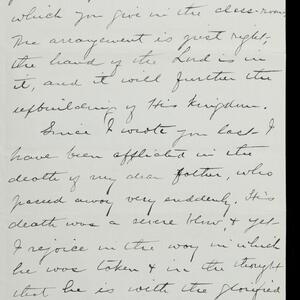 which you give in the class-room.
The arrangement is just right,
the hand of the Lord is in
it, and it will further the
upbuilding of His Kingdom.
Since I wrote you last I
have been afflicted in the
death of my dear father, who
passed away very suddenly. His
death was a severe blow, & yet
I rejoice in the way in which
he was taken & in the thought
that he is with the glorified